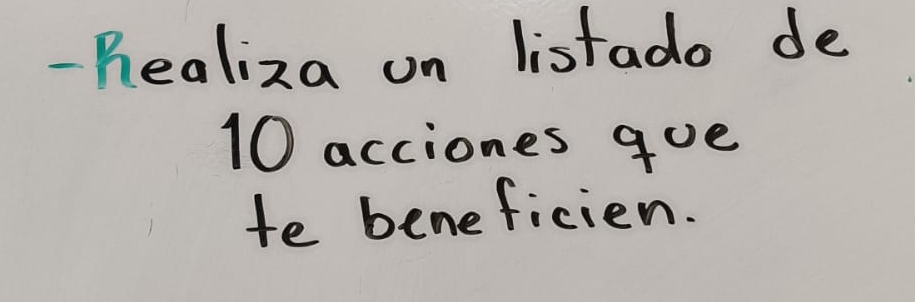 -Realiza un listado de
10 acciones que
te beneficien.